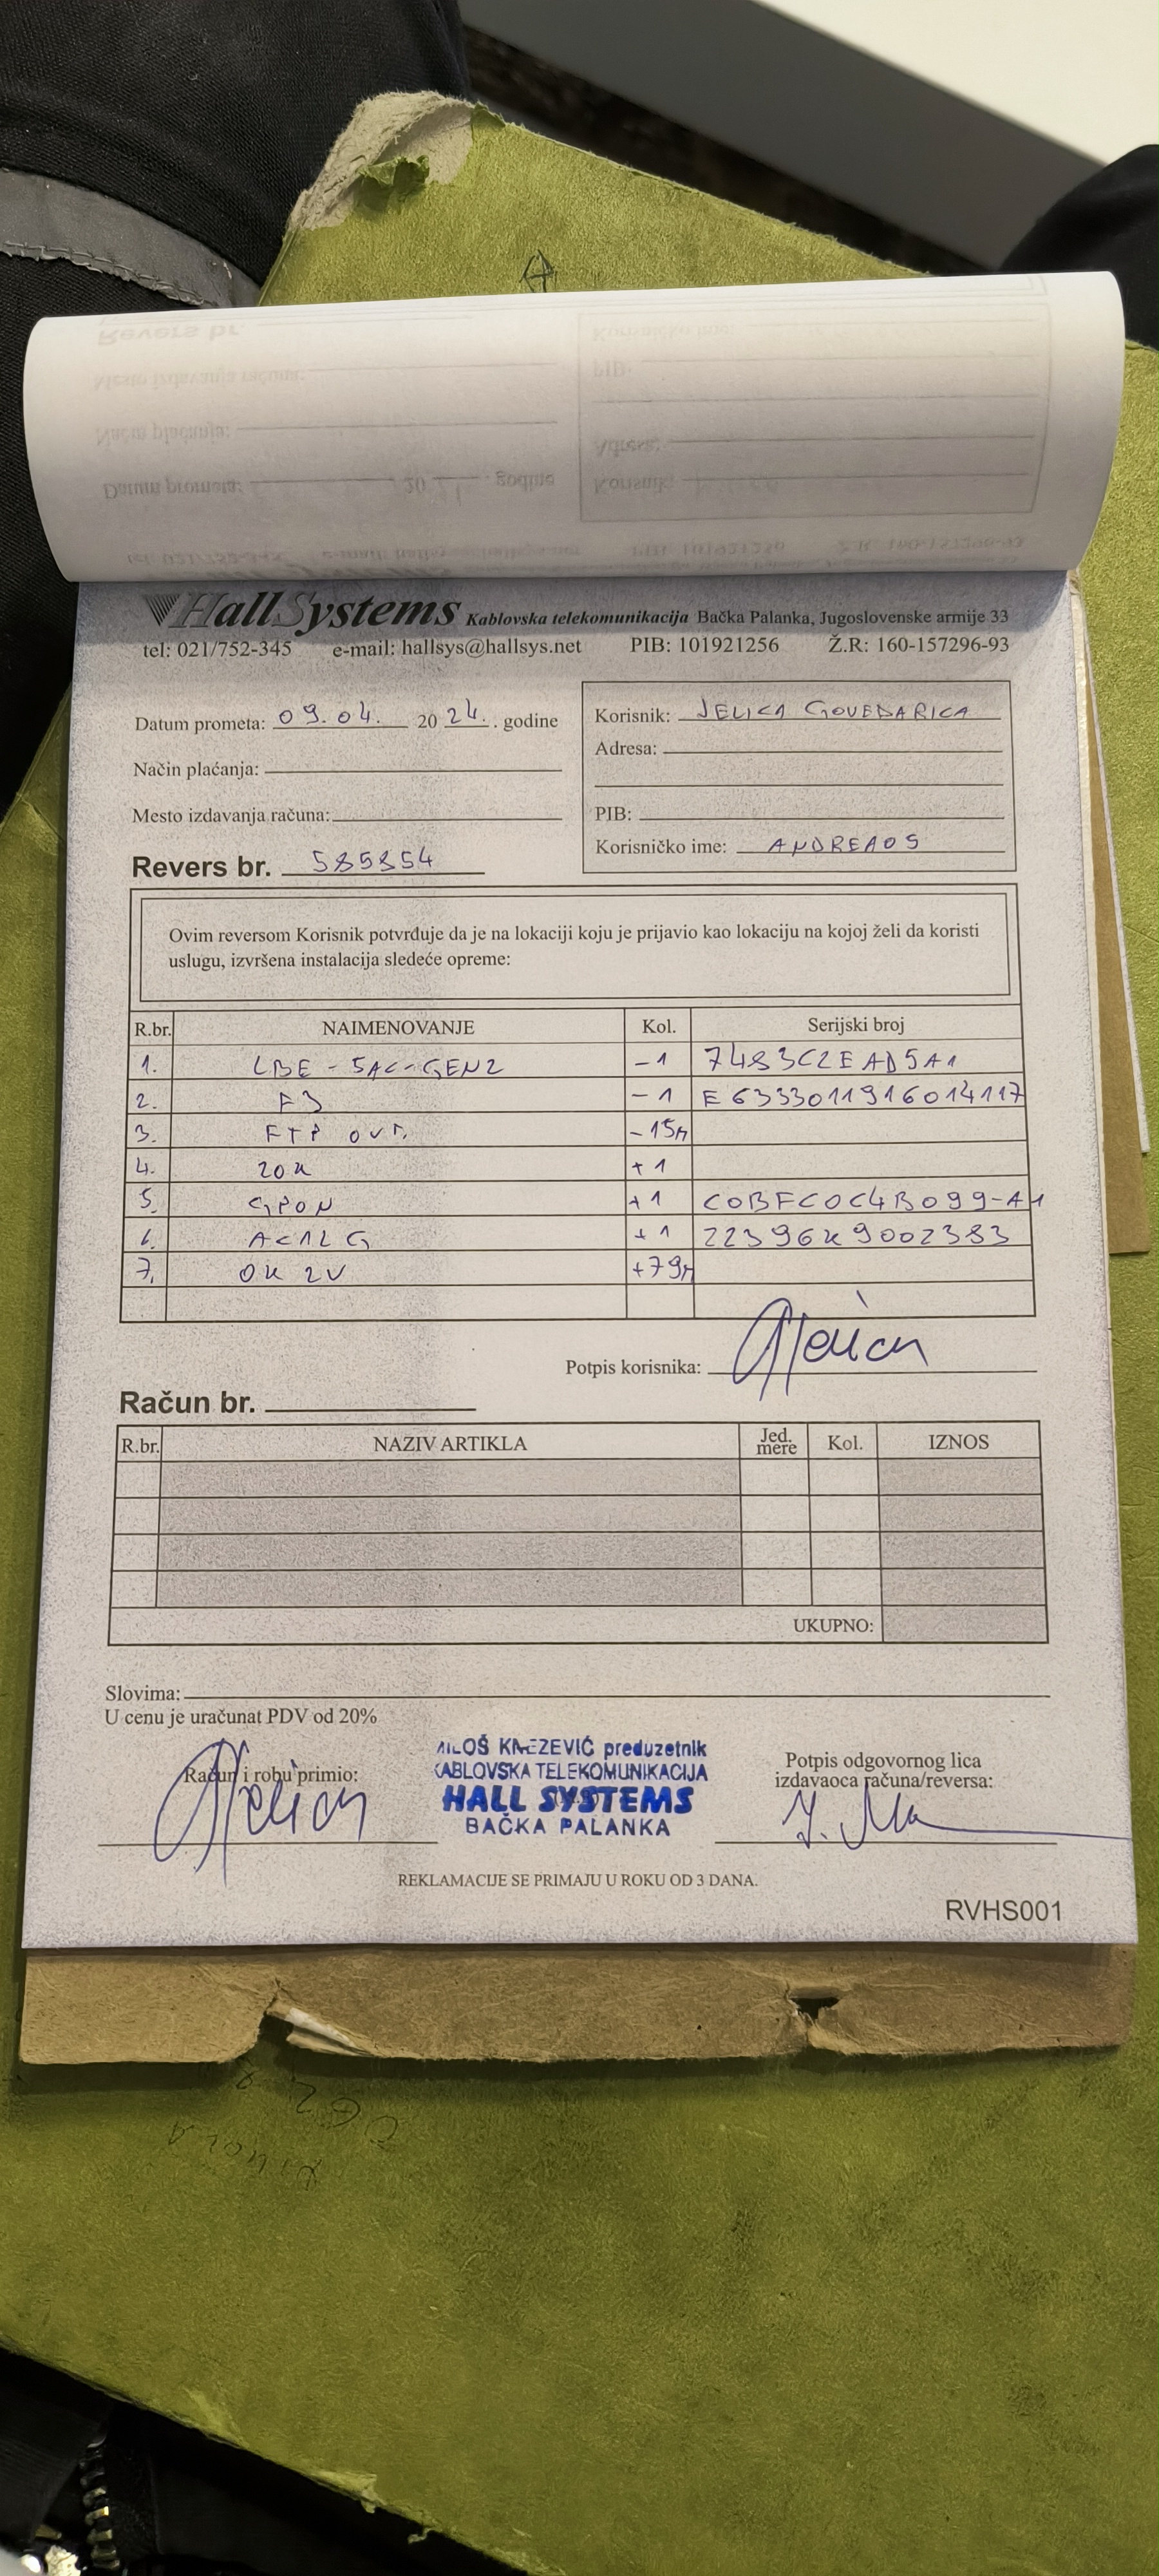 HallSystems Kablovska telekomunikacija Bačka Palanka, Jugoslovenske armije 33
tel: 021/752-345 e-mail: hallsys@hallsys.net PIB: 101921256 Ž.R: 160-157296-93
Datum prometa: 09.04. 20 24. . godine
Način plaćanja:
Mesto izdavanja računa:
Revers br. 585854
Korisnik: JELICA GOVEDARICA
Adresa:
PIB:
Korisničko ime: ANDREA05
Ovim reversom Korisnik potvrđuje da je na lokaciji koju je prijavio kao lokaciju na kojoj želi da koristi
uslugu, izvršena instalacija sledeće opreme:
R.br. NAIMENOVANJE Kol. Serijski broj
1. LBE - 5AC-GEN2 -1 7483C2EAD5A1
2. F3 -1 E6333011916014117
3. FTP -15m
4. ZOK +1
5. GPON +1 C0BFC0C4B099-A1
6. AC12G +1 22396K9002383
7. OK 2V +79m
Potpis korisnika:
Račun br.
R.br. NAZIV ARTIKLA Jed. mere Kol. IZNOS
UKUPNO:
Slovima:
U cenu je uračunat PDV od 20%
Račun i robu primio:
MILOŠ KNEZEVIĆ preduzetnik
KABLOVSKA TELEKOMUNIKACIJA
HALL SYSTEMS
BAČKA PALANKA
Potpis odgovornog lica
izdavaoca računa/reversa:
REKLAMACIJE SE PRIMAJU U ROKU OD 3 DANA.
RVHS001